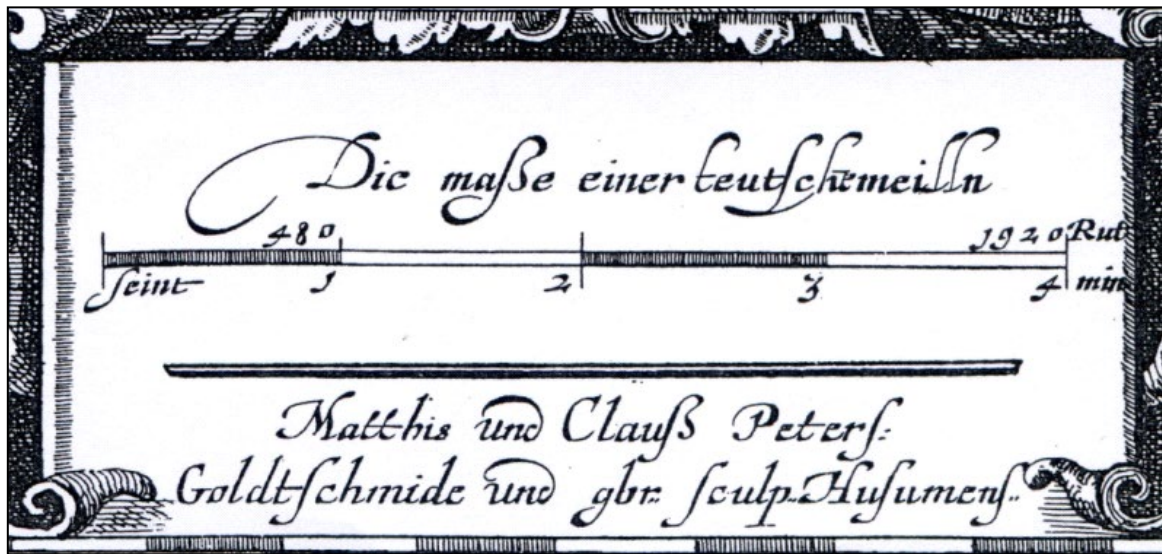 Die maße einer teutschemeilln
480 1920 Rut
seint 1 2 3 4 min
Matthis und Clauß Peters:
Goldtschmide und gbr: sculp. Husumens..